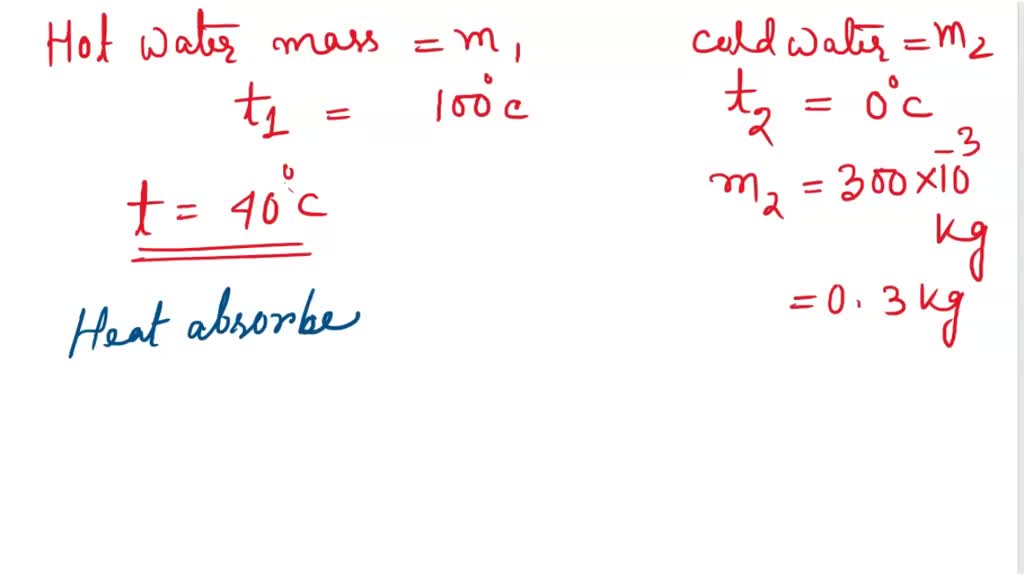 Hot water mass = m₁
t₁ = 100°c
t = 40°c
Heat absorbe
cold water = m₂
t₂ = 0°c
m₂ = 300×10⁻³
kg
= 0.3 kg